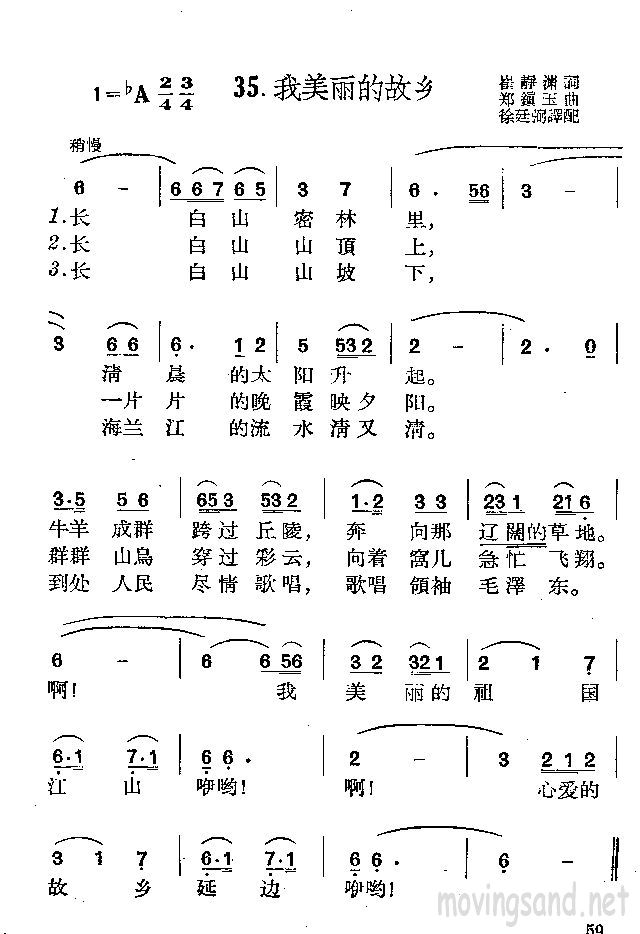 1=♭A 2/4 3/4 35.我美丽的故乡 崔靜渊詞
郑鎮玉曲
徐廷弼譯配
稍慢
6 - | 6 6 7 6 5 | 3 7 | 6 . 56 |
1.长 白山 密林 里,
2.长 白山 山頂 上,
3.长 白山 山坡 下,
3 6 6 | 6 . 1 2 | 5 5 3 2 | 2 - | 2 . 0
清晨 的太阳升 起。
一片片 的晚霞映夕 阳。
海兰江 的流水清又 清。
3·5 5 6 | 65 3 5 3 2 | 1·2 3 3 | 23 1 21 6
牛羊 成群 跨过 丘陵, 奔 向那 辽闊的草地。
群群 山鳥 穿过 彩云, 向着 窩儿 急忙 飞翔。
到处 人民 尽情 歌唱, 歌唱 領袖 毛澤 东。
6 - | 6 6 56 | 3 2 32 1 | 2 1 7
啊! 我 美 丽的 祖 国
6·1 7·1 | 6 6 . | 2 - | 3 2 1 2
江 山 咿哟! 啊! 心爱的
3 1 7 | 6·1 7·1 | 6 6 . | 6 - ‖
故 乡 延 边 咿哟!
movingsand.net
59